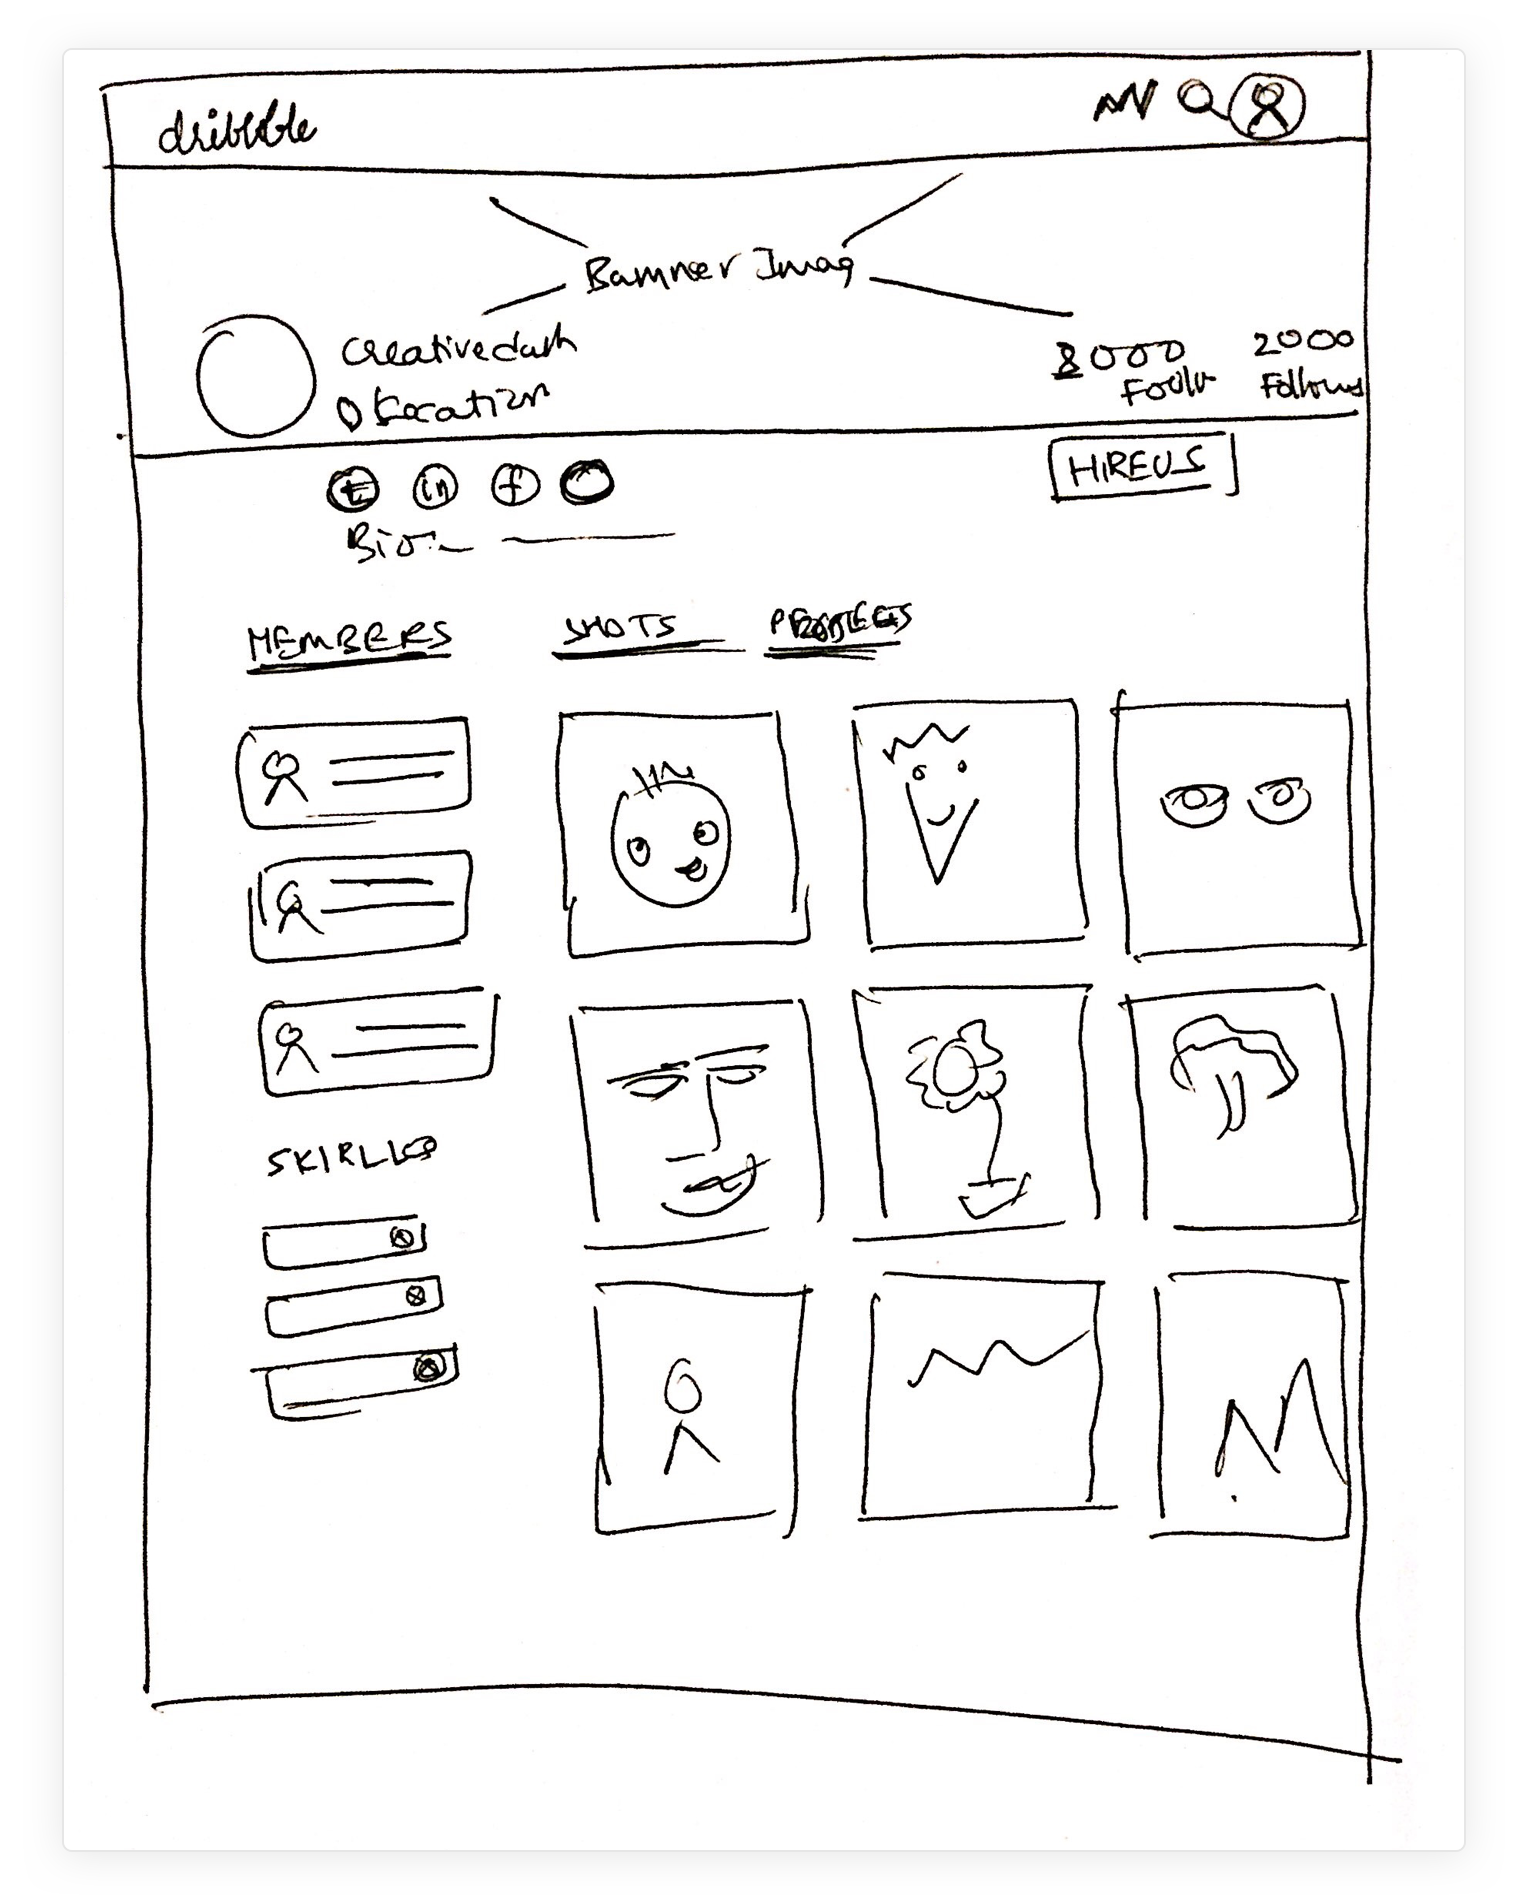 dribbble
Banner Imag
Creativedash
Location
8000
2000
Follows
HIREUS
t in f
Bio:-
MEMBERS
SHOTS
PROJECTS